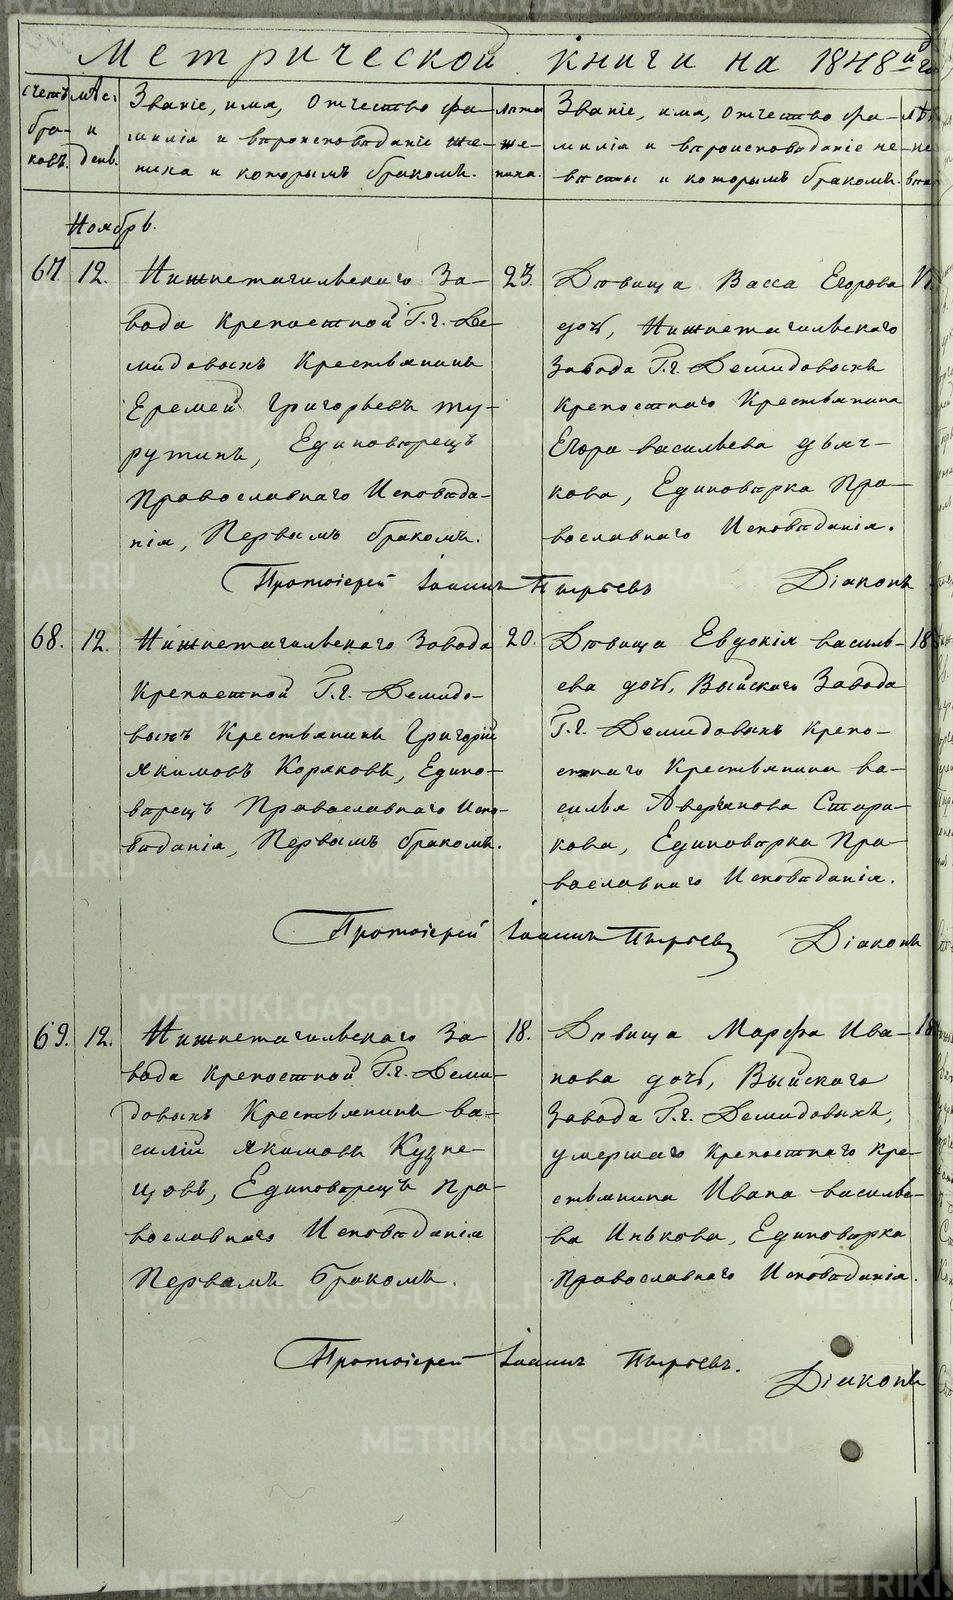 Метрической книги на 1848й го
счетъ бра- ковъ.
мѣс. и день.
Званіе, имя, отчество фа-
милія и вѣроисповѣданіе же-
ниха и которымъ бракомъ.
лѣта же- ниха.
Званіе, имя, отчество фа-
милія и вѣроисповѣданіе не-
вѣсты и которымъ бракомъ.
Ноябрь.
67. 12.
Нижнетагильскаго За-
вода крепостной Г.г. Де-
мидовыхъ Крестьянинъ
Еремей Григорьевъ Ту-
рутинъ, Единоверецъ
Православнаго Исповѣда-
нія, Первымъ бракомъ.
23.
Дѣвица Васса Егорова
дочь, Нижнетагильскаго
Завода Г.г. Демидовыхъ
крепостнаго Крестьянина
Егора Васильева Дьяч-
кова, Единовѣрка Пра-
вославнаго Исповѣданія.
17
Протоіерей Іоаннъ Пырьевъ Діаконъ
68. 12.
Нижнетагильскаго Завода
крепостной Г.г. Демидо-
выхъ Крестьянинъ Григорій
Якимовъ Коряковъ, Едино-
верецъ Православнаго Испо-
вѣданія, Первымъ бракомъ.
20.
Дѣвица Евдокія Василь-
ева дочь, Выйскаго Завода
Г.г. Демидовыхъ крепо-
стнаго Крестьянина Ва-
силья Аверьянова Стари-
кова, Единовѣрка Пра-
вославнаго Исповѣданія.
18
Протоіерей Іоаннъ Пырьевъ Діаконъ
69. 12.
Нижнетагильскаго За-
вода крепостной Г.г. Деми-
довыхъ Крестьянинъ Ва-
силій Якимовъ Кузне-
цовъ, Единоверецъ Пра-
вославнаго Исповѣданія
Первымъ бракомъ.
18.
Дѣвица Марфа Ива-
нова дочь, Выйскаго
Завода Г.г. Демидовыхъ,
умершаго крепостнаго Кре-
стьянина Ивана Василье-
ва Инькова, Единовѣрка
Православнаго Исповѣданія.
18
Протоіерей Іоаннъ Пырьевъ.
Діаконъ
METRIKI.GASO-URAL.RU